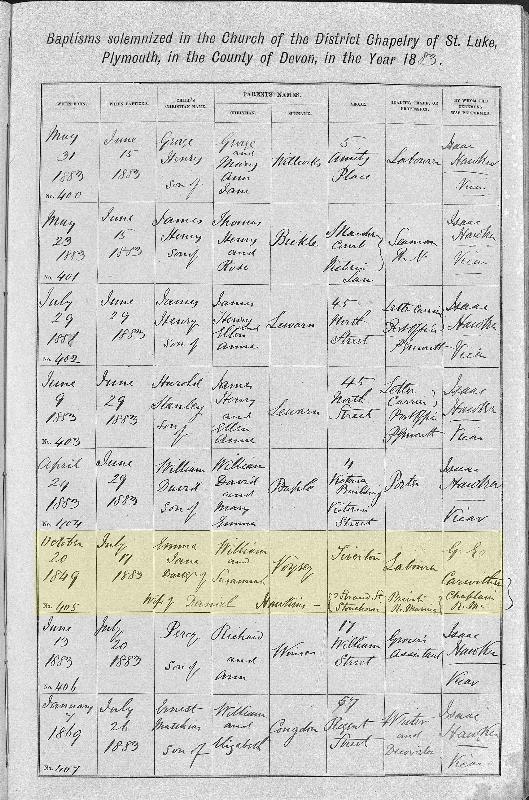 Baptisms solemnized in the Church of the District Chapelry of St. Luke,
Plymouth, in the County of Devon, in the Year 1883.
WHEN BORN. WHEN BAPTIZED. CHILD'S CHRISTIAN NAME. PARENTS' NAMES. CHRISTIAN. SURNAME. ABODE. QUALITY, TRADE, OR PROFESSION. BY WHOM THE CEREMONY WAS PERFORMED.
May June George George 5 Isaac
31 15 Henry and Willcocks Amity Labourer Hawker
1883 1883 son of Mary Place Vicar
No. 400 Ann
Jane
May June James Thomas Isaac
23 15 Henry Henry Court Seaman Hawker
1883 1883 son of and Victoria R.N. Vicar
No. 401 Rose Lane
July June James James 45 Letter Carrier Isaac
29 29 Henry Henry Leworn North Post Office Hawker
son of and Street Plymouth Vicar
No. 402 Ellen
Annie
June June Harold James 45 Letter Isaac
9 29 Stanley Henry Leworn North Carrier Hawker
1883 1883 son of and Street Post Office Vicar
No. 403 Ellen Plymouth
Annie
April June William William 4 Isaac
29 29 David David Victoria Porter Hawker
1883 1883 son of and Building Vicar
No. 404 Mary Victoria
Emma Street
October July Emma William Tiverton G. E.
20 11 Jane and Voysey Labourer Carwithen
1849 1883 Daug. of Susannah Chaplain
No. 405 Wife of Daniel Hawkins - Strand St Stonehouse R. Marine R.N.
June July Percy Richard 17 Grocer's Isaac
13 20 and William Assistant Hawker
1883 1883 son of Ann Street Vicar
No. 406
January July Ernest William 57 Writer Isaac
7 26 and Congdon Regent and Hawker
1869 1883 son of Elizabeth Street Decorator Vicar
No. 407